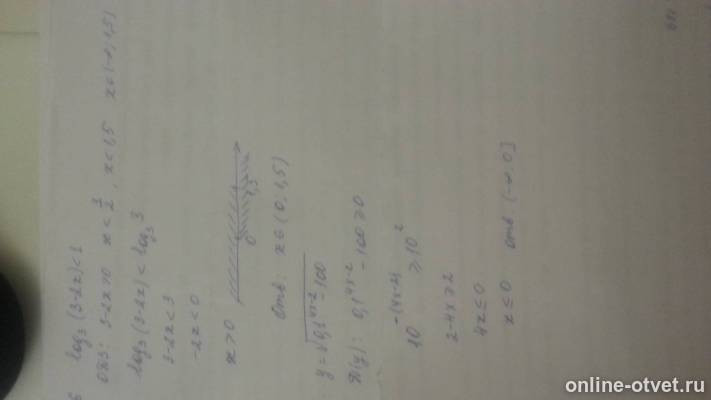 log₃(3-2x)<1
ОДЗ: 3-2x>0 x<3/2, x<1,5 x∈(-∞, 1,5)
log₃(3-2x)<log₃3
3-2x<3
-2x<0
x>0
0 1,5
Отв: x∈(0, 1,5)
y=√(0,1^(4x-2)-100)
D(y): 0,1^(4x-2)-100≥0
10^(-(4x-2))≥10²
2-4x≥2
4x≤0
x≤0 Отв (-∞, 0]
online-otvet.ru